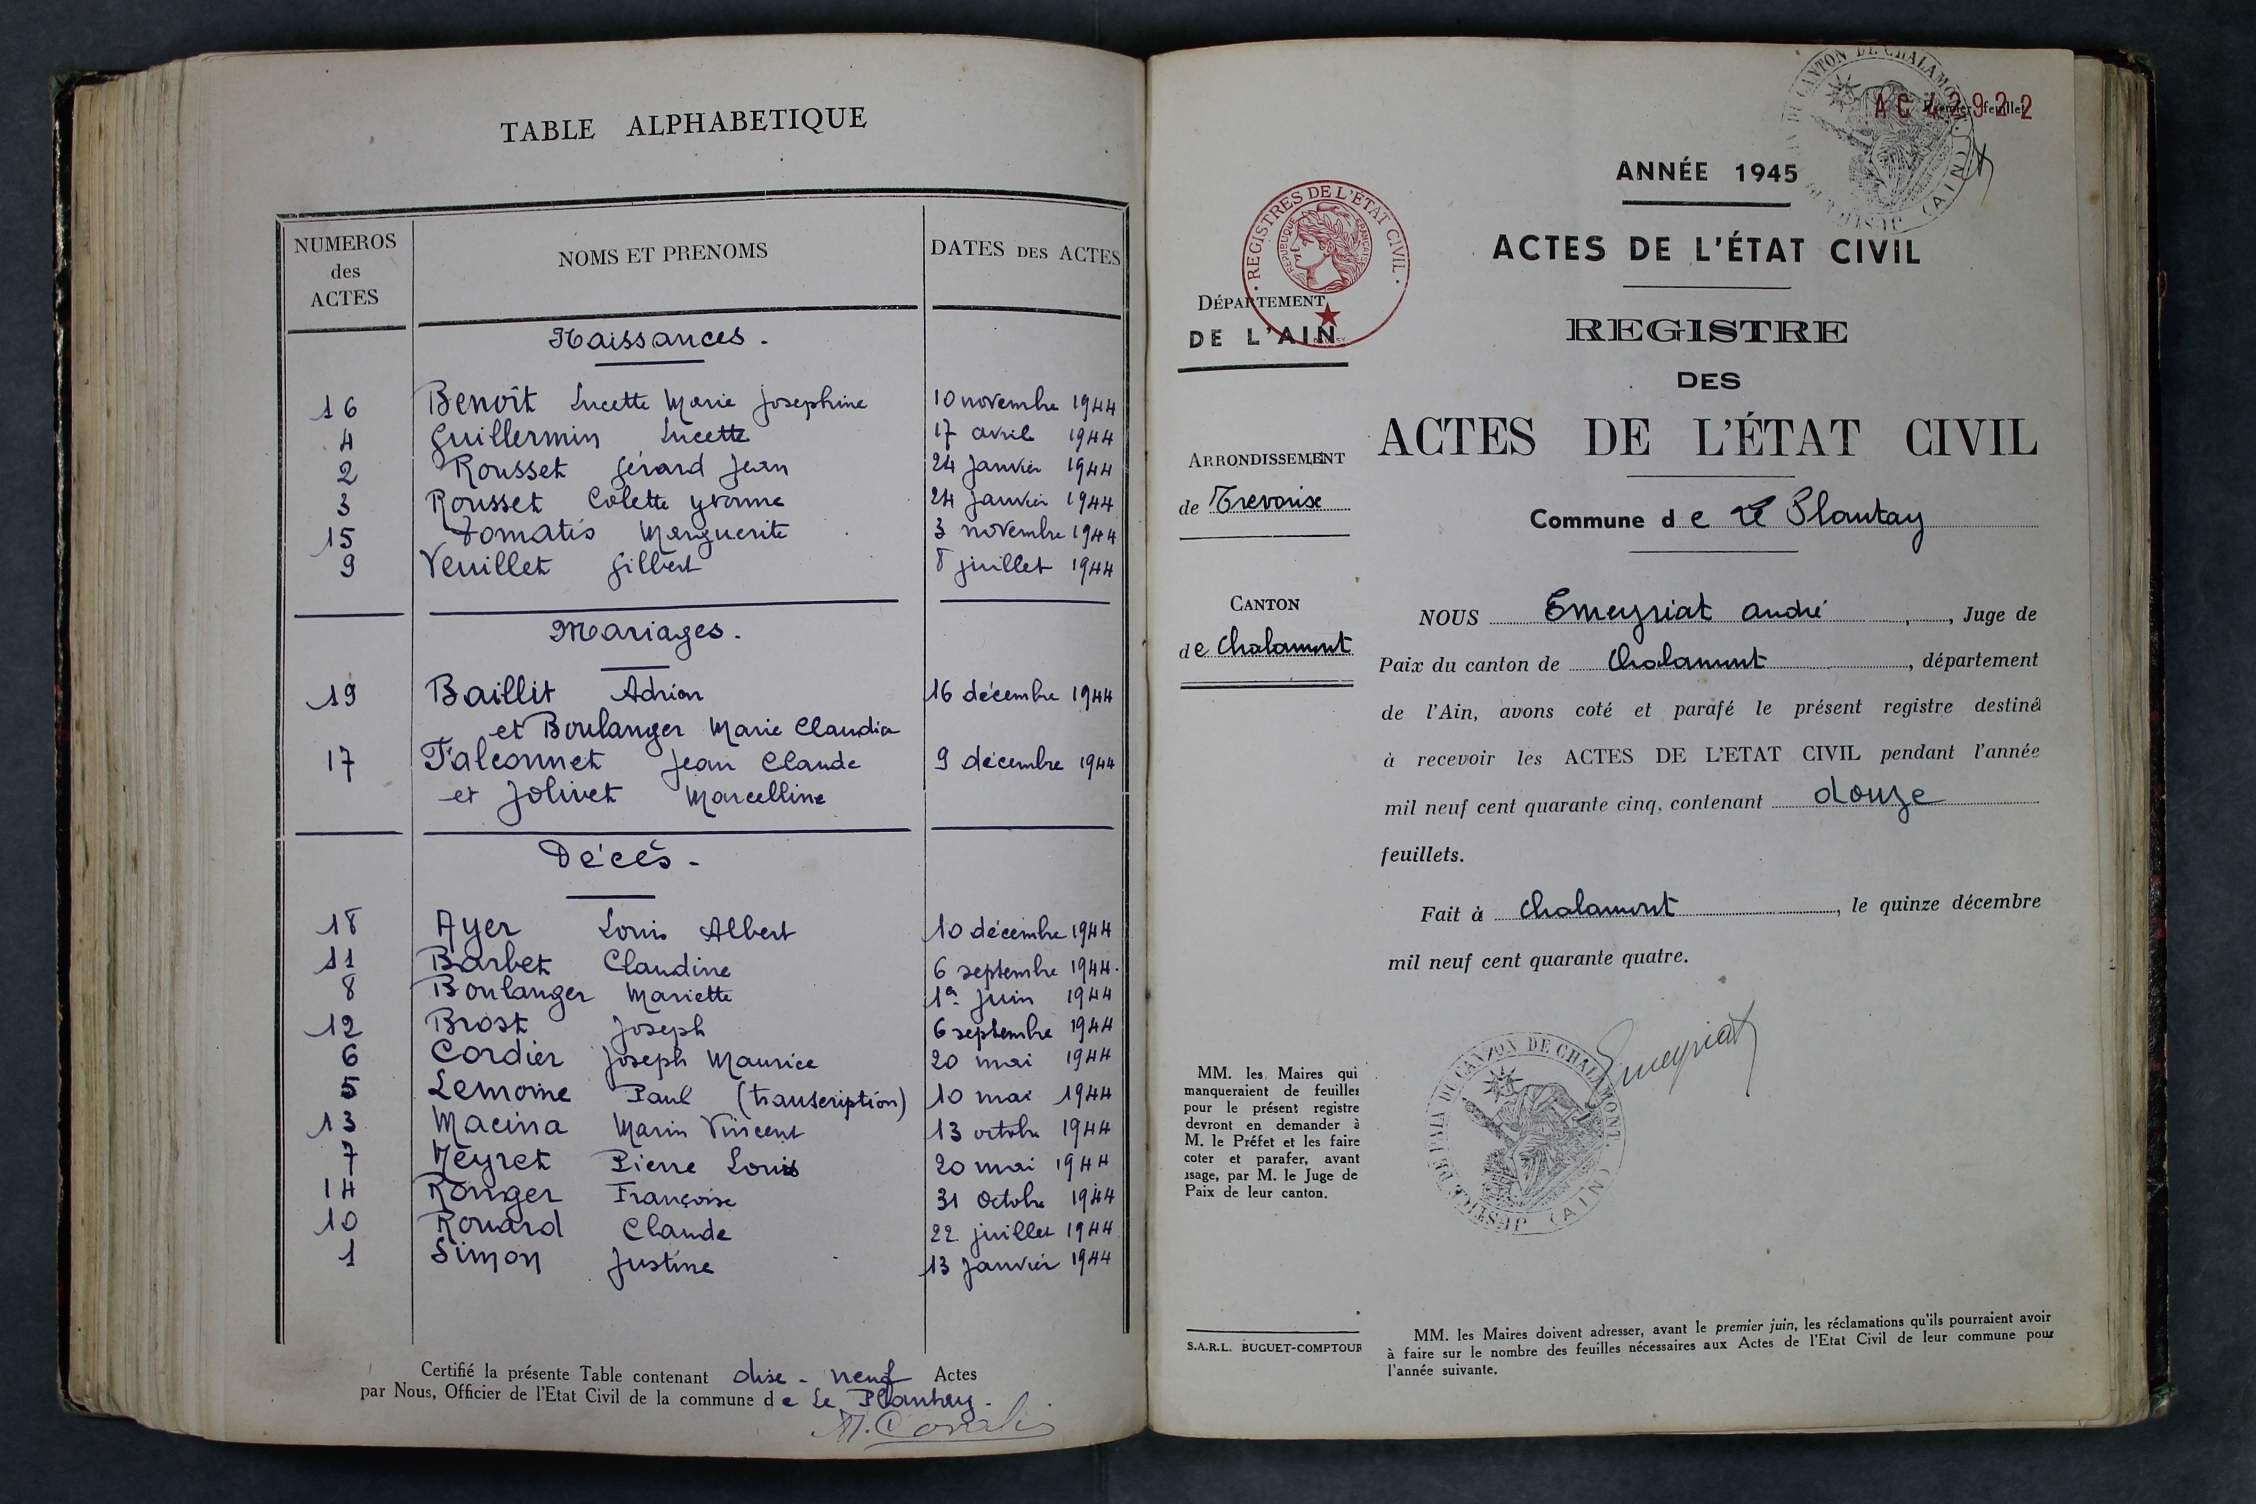 TABLE ALPHABETIQUE
NUMEROS des ACTES
NOMS ET PRENOMS
DATES DES ACTES
Naissances.
16 Benoît Lucette Marie Josephine 10 novembre 1944
4 Guillermin Lucette 17 avril 1944
2 Rousset Gérard Jean 24 janvier 1944
3 Rousset Colette Yvonne 24 janvier 1944
15 Tomatis Marguerite 3 novembre 1944
9 Veuillet Gilbert 8 juillet 1944
Mariages.
19 Baillit Adrien 16 décembre 1944
et Boulanger Marie Claudia
17 Falconnet Jean Claude 9 décembre 1944
et Jolivet Marcelline
Décès -
18 Ayer Louis Albert 10 décembre 1944
11 Barbet Claudine 6 septembre 1944.
8 Boulanger Mariette 1er juin 1944
12 Brost Joseph 6 septembre 1944
6 Cordier Joseph Maurice 20 mai 1944
5 Lemoine Paul (transcription) 10 mai 1944
13 Macina Marin Vincent 13 octobre 1944
7 Neyret Pierre Louis 20 mai 1944
14 Ronger Françoise 31 octobre 1944
10 Rouard Claude 22 juillet 1944
1 Simon Justine 13 janvier 1944
Certifié la présente Table contenant dise-neuf Actes
par Nous, Officier de l'Etat Civil de la commune de Le Plantay.
AC 42922
Premier feuillet
ANNÉE 1945
ACTES DE L'ÉTAT CIVIL
REGISTRES DE L'ÉTAT CIVIL
REPUBLIQUE FRANÇAISE
DÉPARTEMENT
DE L'AIN
REGISTRE
DES
ACTES DE L'ÉTAT CIVIL
ARRONDISSEMENT
de Trevoux
Commune de Le Plantay
CANTON
de Chalamont
NOUS Emeyriat André, Juge de
Paix du canton de Chalamont, département
de l'Ain, avons coté et parafé le présent registre destiné
à recevoir les ACTES DE L'ETAT CIVIL pendant l'année
mil neuf cent quarante cinq, contenant douze
feuillets.
Fait à Chalamont, le quinze décembre
mil neuf cent quarante quatre.
Emeyriat
JUSTICE DE PAIX DU CANTON DE CHALAMONT (AIN)
MM. les Maires qui
manqueraient de feuilles
pour le présent registre
devront en demander à
M. le Préfet et les faire
coter et parafer, avant
usage, par M. le Juge de
Paix de leur canton.
S.A.R.L. BUGUET-COMPTOUR
MM. les Maires doivent adresser, avant le premier juin, les réclamations qu'ils pourraient avoir
à faire sur le nombre des feuilles nécessaires aux Actes de l'Etat Civil de leur commune pour
l'année suivante.